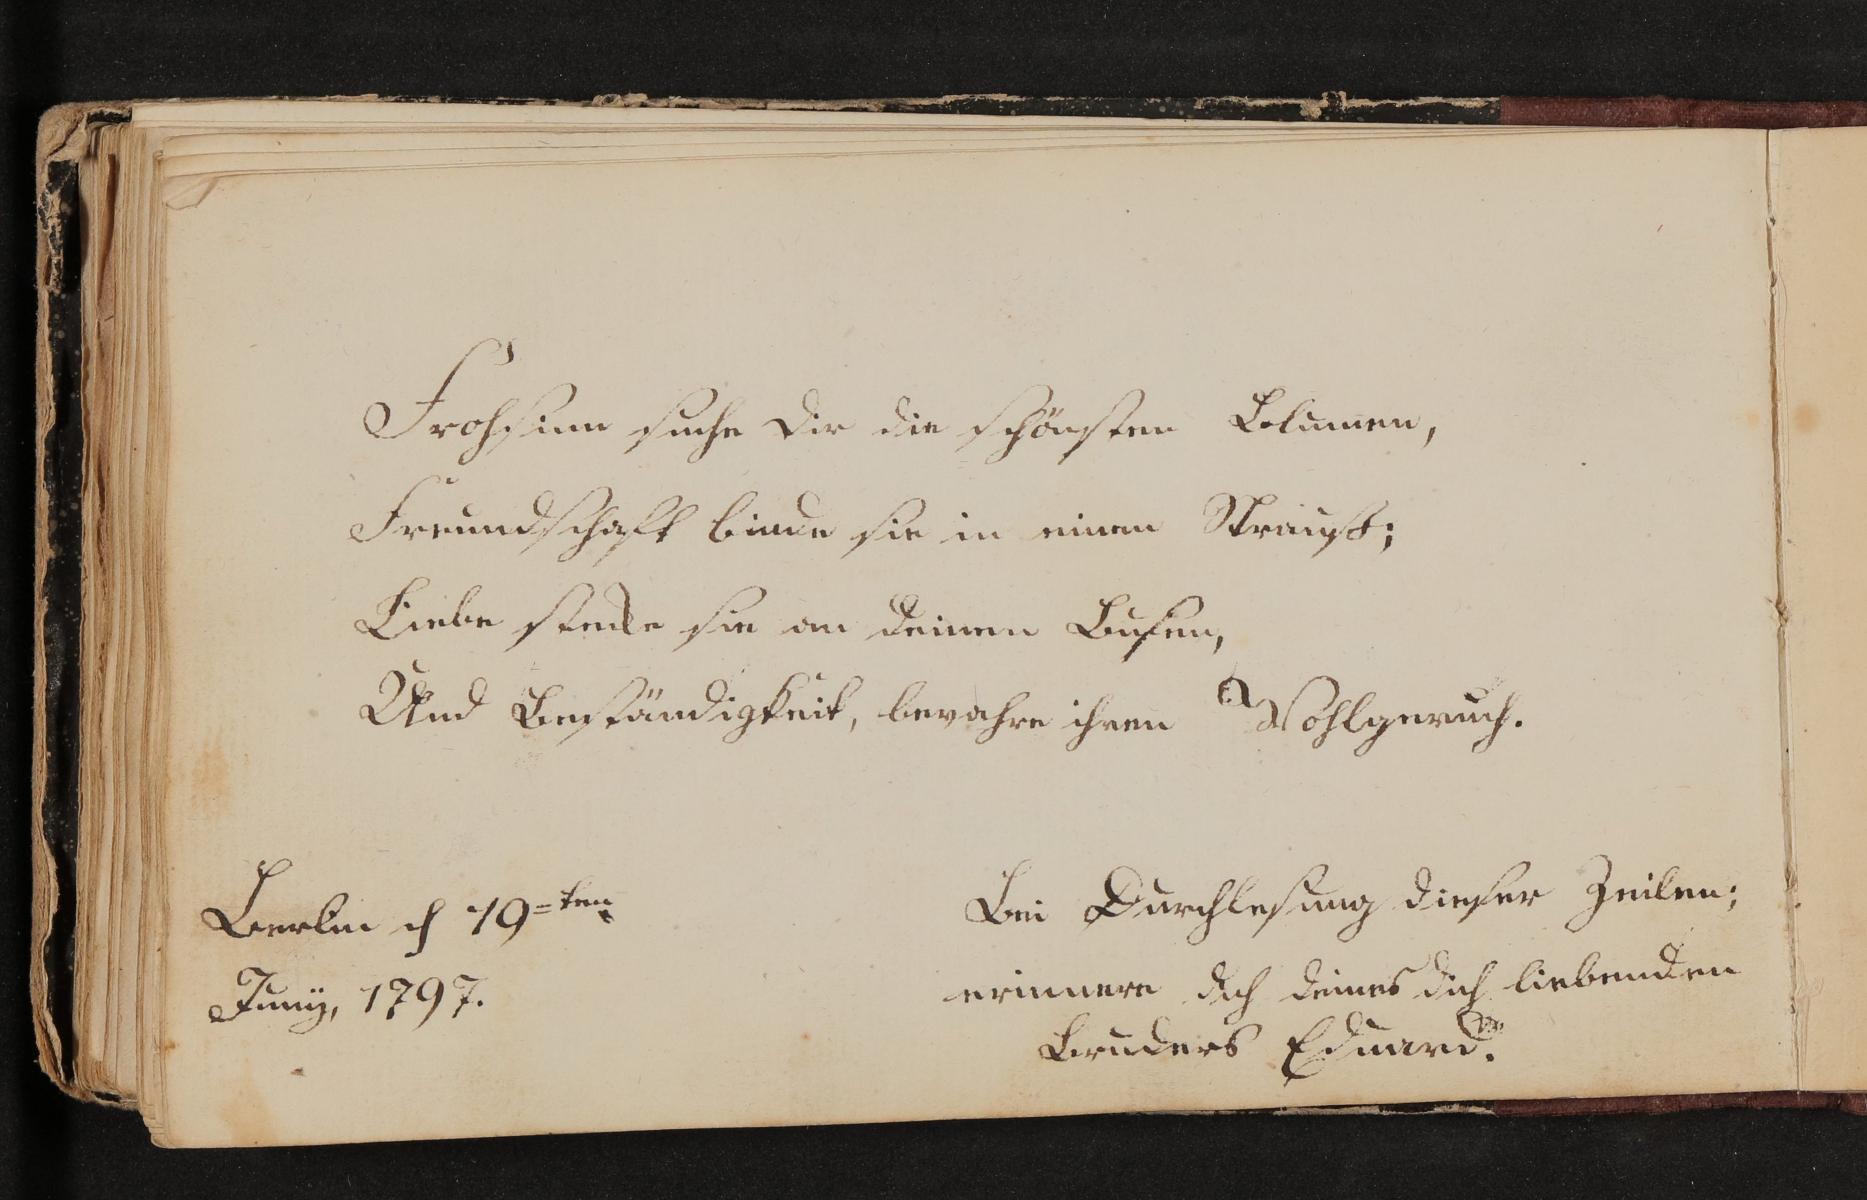 Frohsinn suche Dir die schönsten Blumen,
Freundschaft binde sie in einen Strauß;
Liebe stecke sie an deinen Busen,
Und Beständigkeit, bewahre ihren Wohlgeruch.
Berlin d 19=ten
Juny, 1797.
Bei Durchlesung dieser Zeilen;
erinnere dich deines dich liebenden
Bruders Eduard.